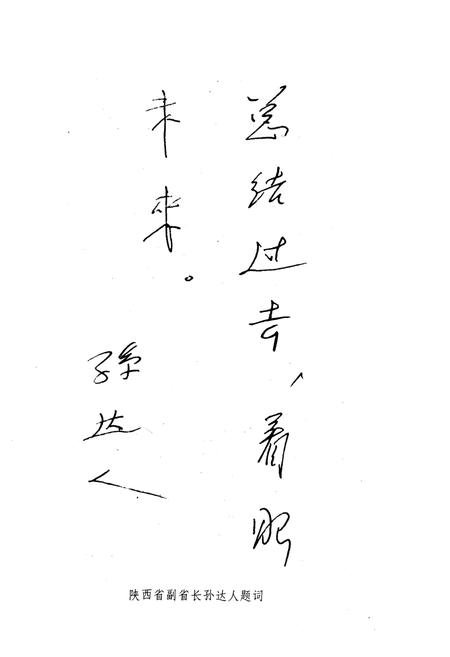 总结过去，着眼
未来。
孫达人
陕西省副省长孙达人题词